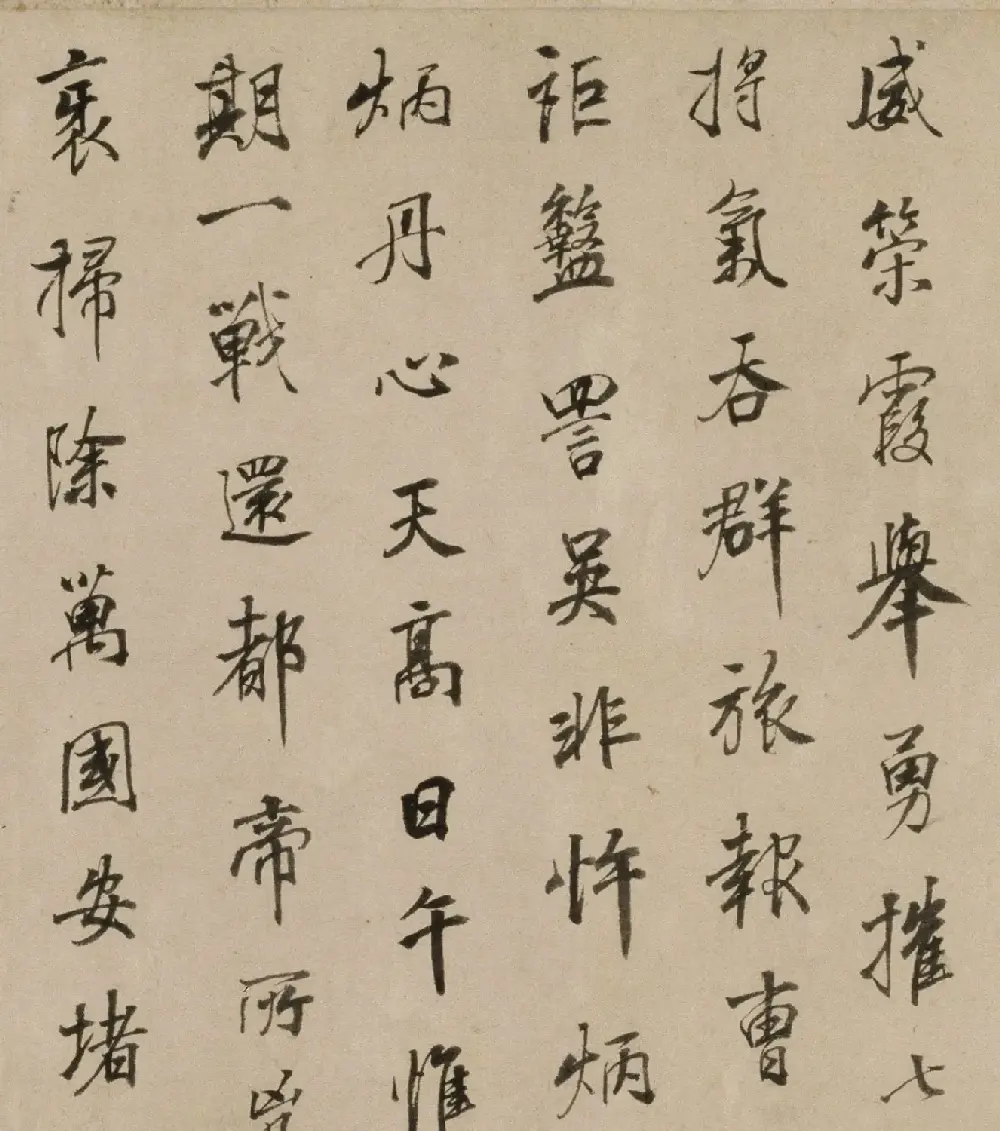 威策霞舉勇摧七
將氣吞群旅報曹
詎盭詈吳非忤炳
炳丹心天高日午惟
期一戰還都帝所
衺掃除萬國安堵